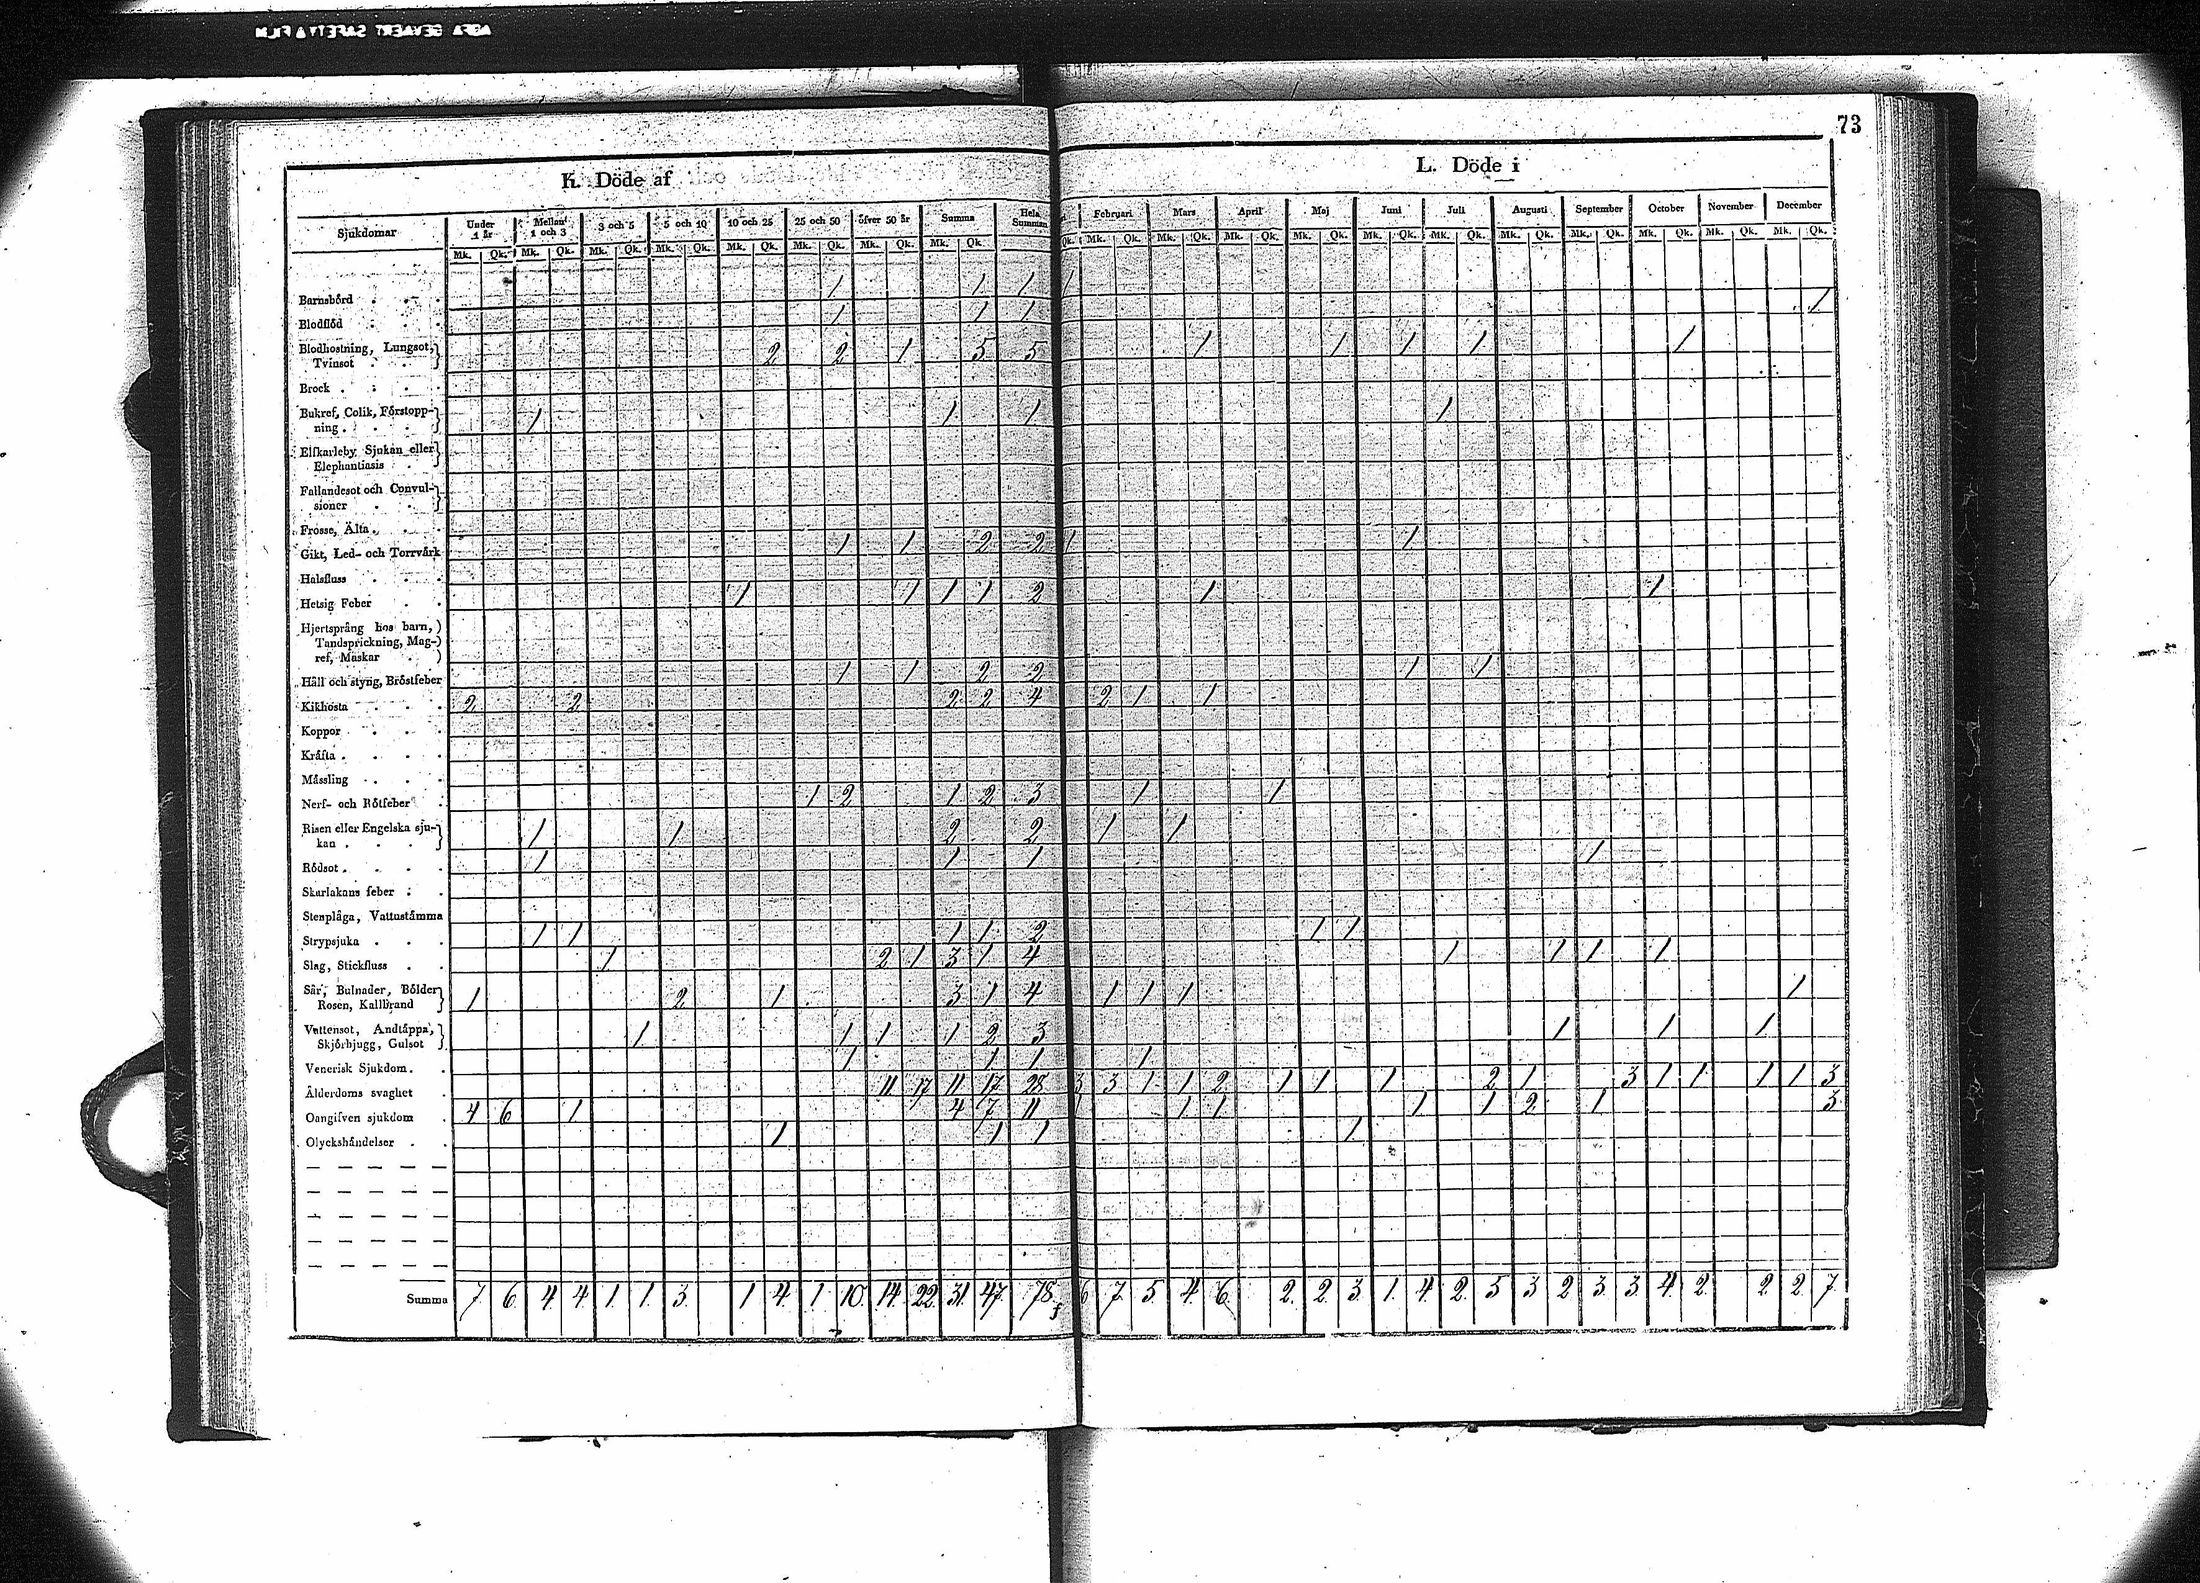 AGFA GEVAERT SAFETY FILM
73
K. Döde af
L. Döde i
Sjukdomar | Under 1 år | Mellan 1 och 3 | 3 och 5 | 5 och 10 | 10 och 25 | 25 och 50 | öfver 50 år | Summa | Hela Summan | Februari | Mars | April | Maj | Juni | Juli | Augusti | September | October | November | December
Mk. Qk. Mk. Qk. Mk. Qk. Mk. Qk. Mk. Qk. Mk. Qk. Mk. Qk. Mk. Qk. Qk. Mk. Qk. Mk. Qk. Mk. Qk. Mk. Qk. Mk. Qk. Mk. Qk. Mk. Qk. Mk. Qk. Mk. Qk. Mk. Qk. Mk. Qk.
Barnsbörd . . . 1 1 1 1
Blodflöd . . . 1 1 1 1
Blodhostning, Lungsot,
Tvinsot . . . 2 2 1 5 5 1 1 1 1 1
Brock . . . .
Bukref, Colik, Förstopp-
ning . . . . 1 1 1 1
Elfkarleby Sjukan eller
Elephantiasis .
Fallandesot och Convul-
sioner . . .
Frosse, Älta . . .
Gikt, Led- och Torrvärk 1 1 2 2 1 1
Halsfluss . . .
Hetsig Feber . . 1 1 1 1 2 1 1
Hjertsprång hos barn,
Tandsprickning, Mag-
ref, Maskar .
Håll och styng, Bröstfeber 1 1 2 2 1 1
Kikhosta . . . 2 2 2 2 4 2 1 1
Koppor . . . .
Kräfta . . . .
Mässling . . .
Nerf- och Rötfeber . 1 2 1 2 3 1 1
Risen eller Engelska sju-
kan . . . . 1 1 2 2 1 1
Rödsot . . . . 1 1 1 1
Skarlakans feber . .
Stenplåga, Vattustämma
Strypsjuka . . . 1 1 1 1 2 1 1
Slag, Stickfluss . . 1 2 1 3 1 4 1 1 1 1
Sår, Bulnader, Bölder
Rosen, Kallbrand 1 2 1 3 1 4 1 1 1 1
Vattensot, Andtäppa,
Skjörbjugg, Gulsot 1 1 1 1 2 3 1 1 1
Venerisk Sjukdom . . 1 1 1 1
Ålderdoms svaghet . 11 17 11 17 28 3 3 1 1 2 1 1 1 2 1 3 1 1 1 1 3
Oangifven sjukdom . 4 6 1 4 7 11 1 1 1 1 1 2 1 3
Olyckshändelser . . 1 1 1 1
Summa 7 6 4 4 1 1 3 1 4 1 10 14 22 31 47 78 6 7 5 4 6 2 2 3 1 4 2 5 3 2 3 3 4 2 2 2 7